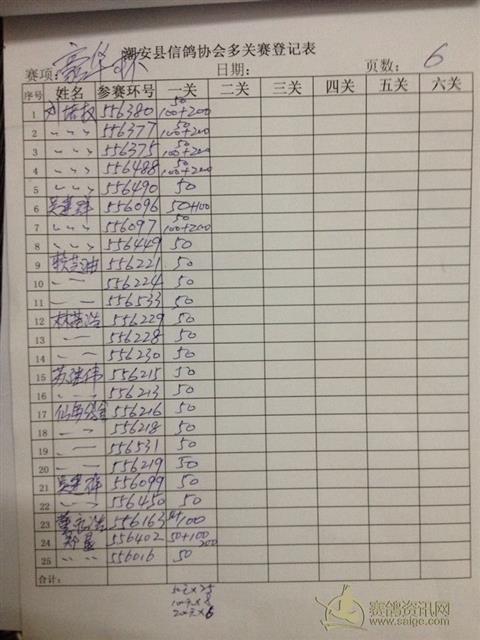 潮安县信鸽协会多关赛登记表
赛项: 豪华杯 日期: 页数: 6
序号 姓名 参赛环号 一关 二关 三关 四关 五关 六关
1 556380 50 100+200
2 〃 〃 〃 556377 50 100+200
3 〃 〃 〃 556375 50 100+200
4 〃 〃 〃 556488 50 100+200
5 〃 〃 〃 556490 50
6 556096 50+100
7 〃 〃 〃 556097 50 100+200
8 〃 〃 〃 556449 50
9 556221 50
10 〃 — 〃 556224 50
11 〃 — 〃 556533 50
12 林若浩 556229 50
13 〃 — 〃 556228 50
14 〃 — 〃 556230 50
15 苏继伟 556215 50
16 556213 50
17 556216 50
18 〃 — 〃 556218 50
19 〃 — 〃 556531 50
20 〃 — 〃 556219 50
21 556099 50
22 〃 — 〃 556450 50
23 556163 100
24 郑星 556402 50+100 200
25 〃 〃 556016 50
合计:
50元×25
100元×8
200元×6
赛鸽资讯网
www.saige.com